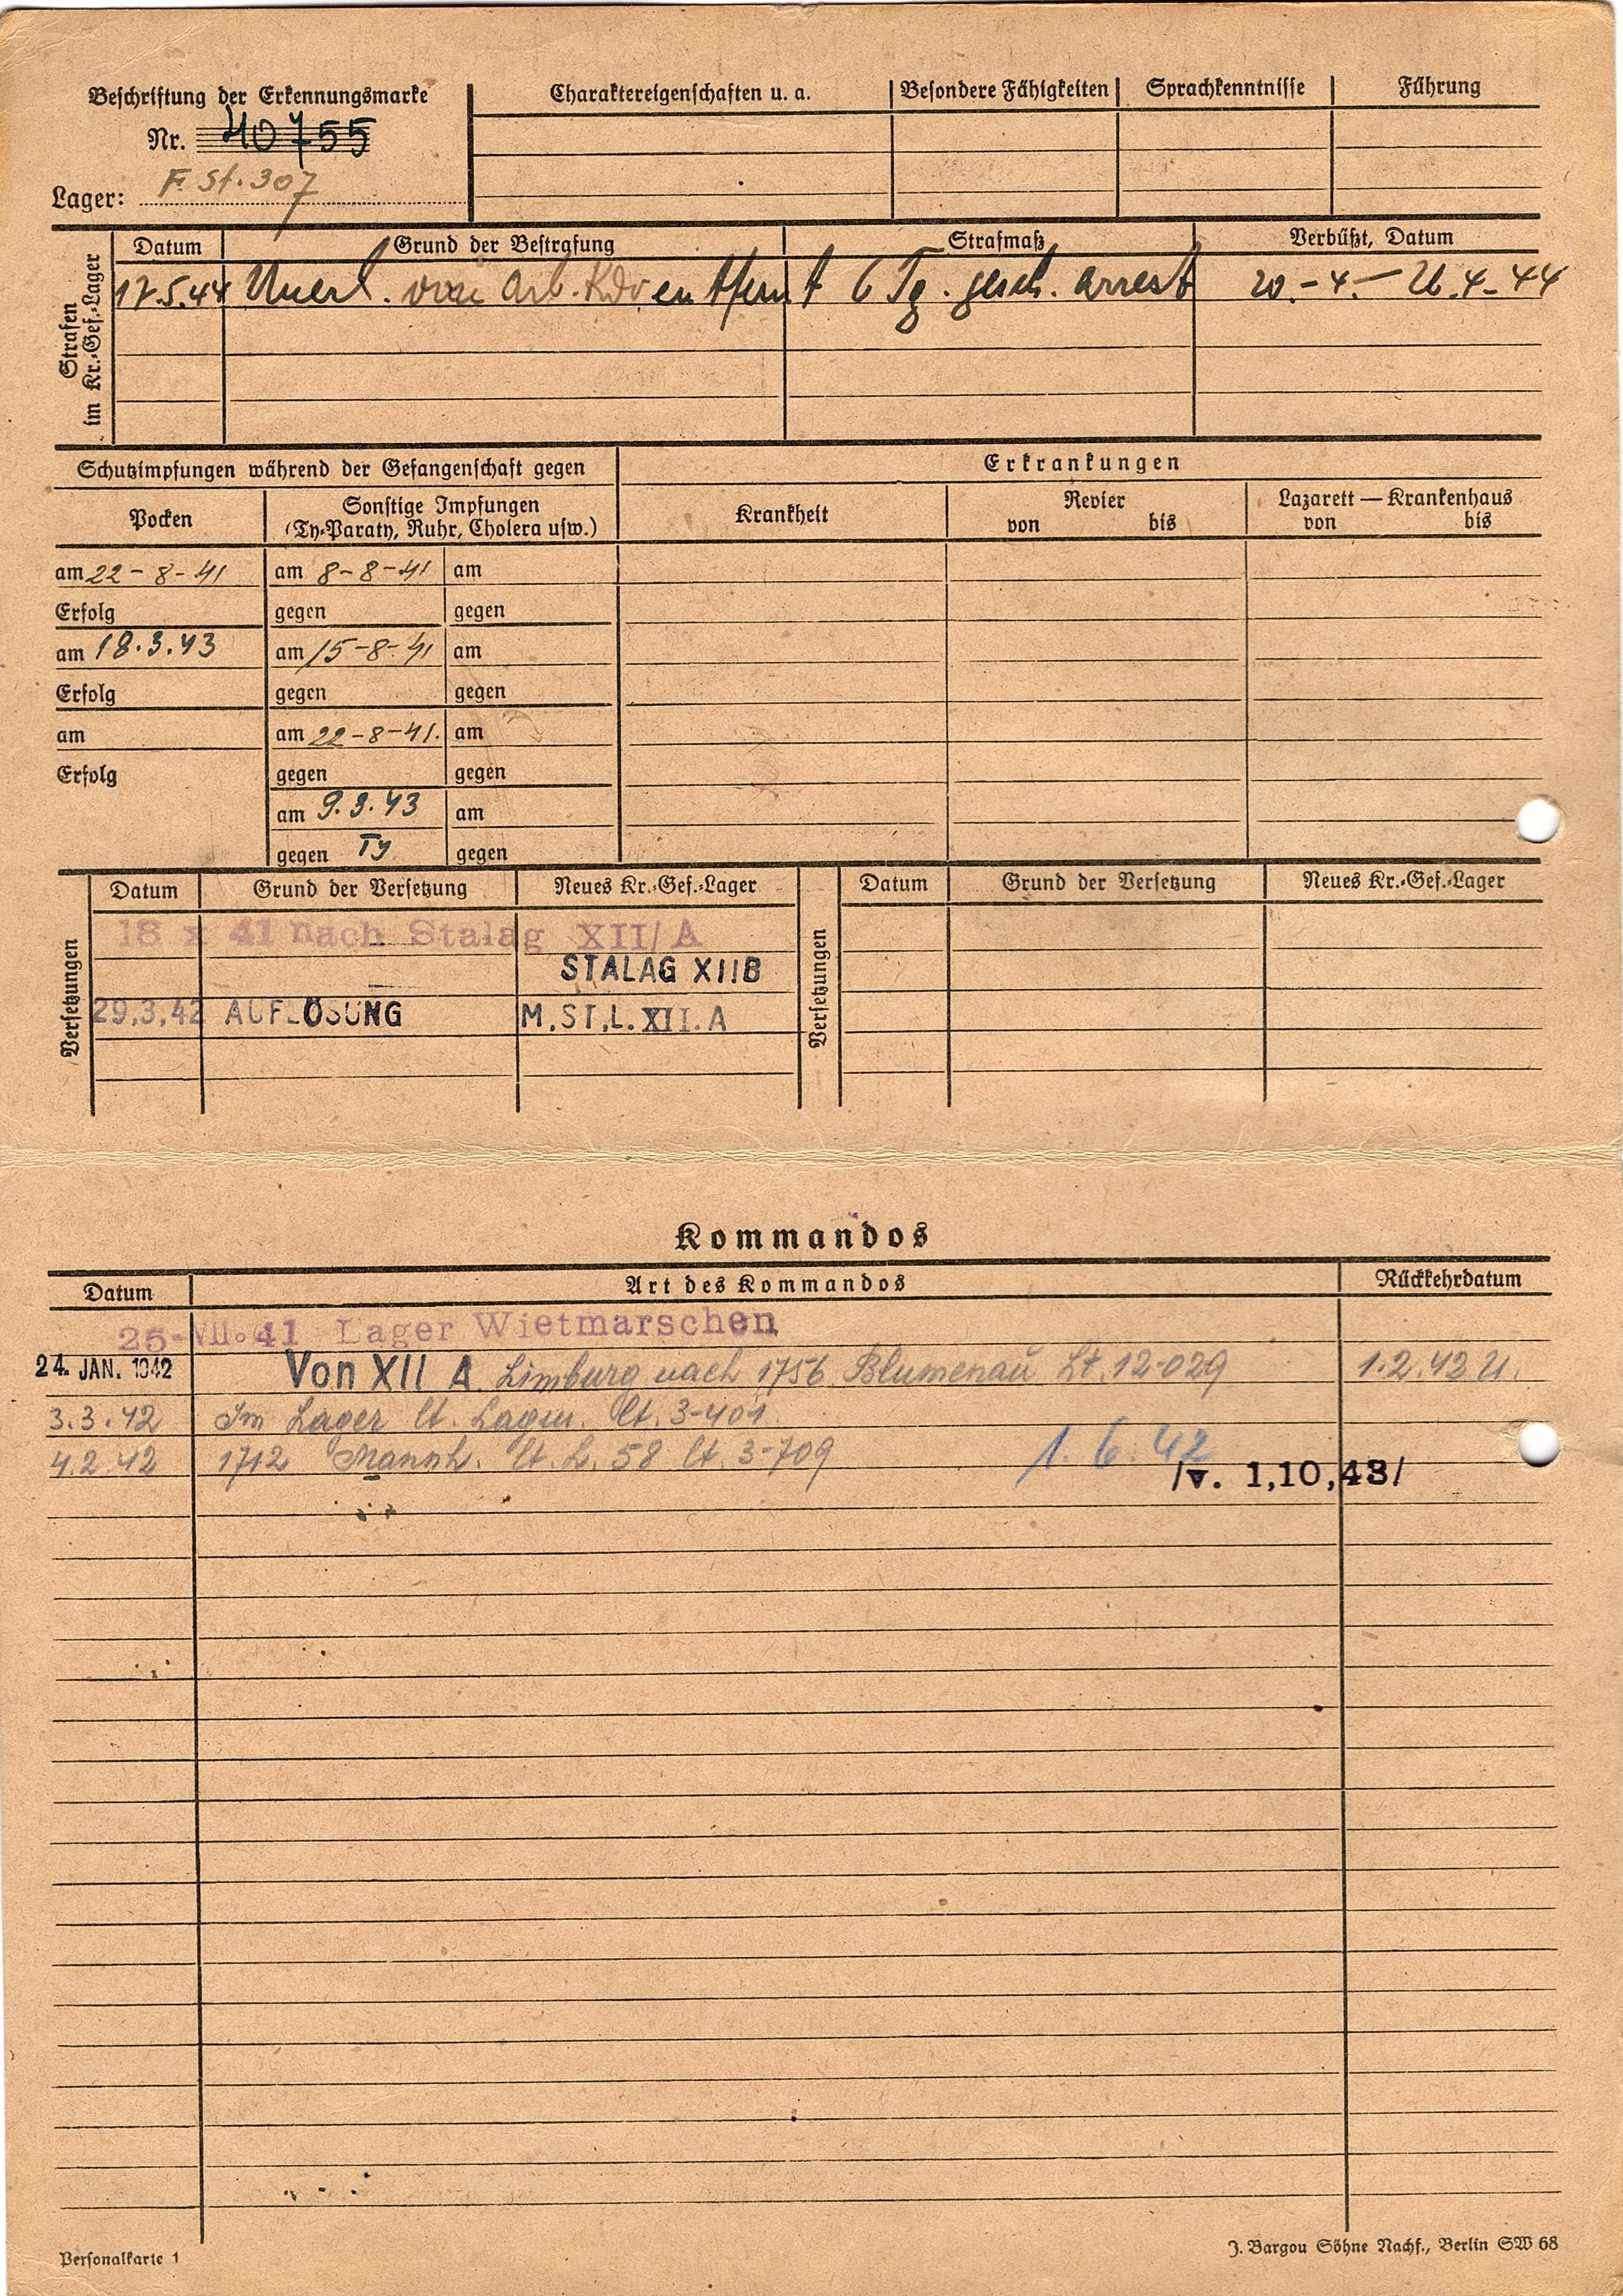 Beschriftung der Erkennungsmarke
Nr. 40755
Lager: F. St. 307
Charaktereigenschaften u. a.
Besondere Fähigkeiten
Sprachkenntnisse
Führung
Strafen im Kr.-Gef.-Lager
Datum Grund der Bestrafung Strafmaß Verbüßt, Datum
17.5.44 Unerl. vom Arb. Kdo entfernt 6 Tg. gesch. Arrest 20.-4.-26.4.44
Schutzimpfungen während der Gefangenschaft gegen
Erkrankungen
Pocken
Sonstige Impfungen
(Ty-Paraty, Ruhr, Cholera usw.)
Krankheit
Revier
von bis
Lazarett — Krankenhaus
von bis
am 22-8-41 am 8-8-41 am
Erfolg gegen gegen
am 18.3.43 am 15-8-41 am
Erfolg gegen gegen
am am 22-8-41. am
Erfolg gegen gegen
am 9.3.43 am
gegen Ty gegen
Versetzungen
Datum Grund der Versetzung Neues Kr.-Gef.-Lager
18 X 41 nach Stalag XII/A
STALAG XIIB
29,3,42 AUFLÖSUNG M.ST.L.XII.A
Versetzungen
Datum Grund der Versetzung Neues Kr.-Gef.-Lager
Kommandos
Datum Art des Kommandos Rückkehrdatum
25-VII.41 Lager Wietmarschen
24. JAN. 1942 Von XII A. Limburg nach 1756 Blumenau Lt. 12-029 1.2.42 U.
3.3.42 Im Lager lt. Lt. 3-401
4.2.42 1712 Mannh. lt. L. 58 lt. 3-709 1.6.42
/v. 1,10,43/
Personalkarte 1
J. Bargou Söhne Nachf., Berlin SW 68